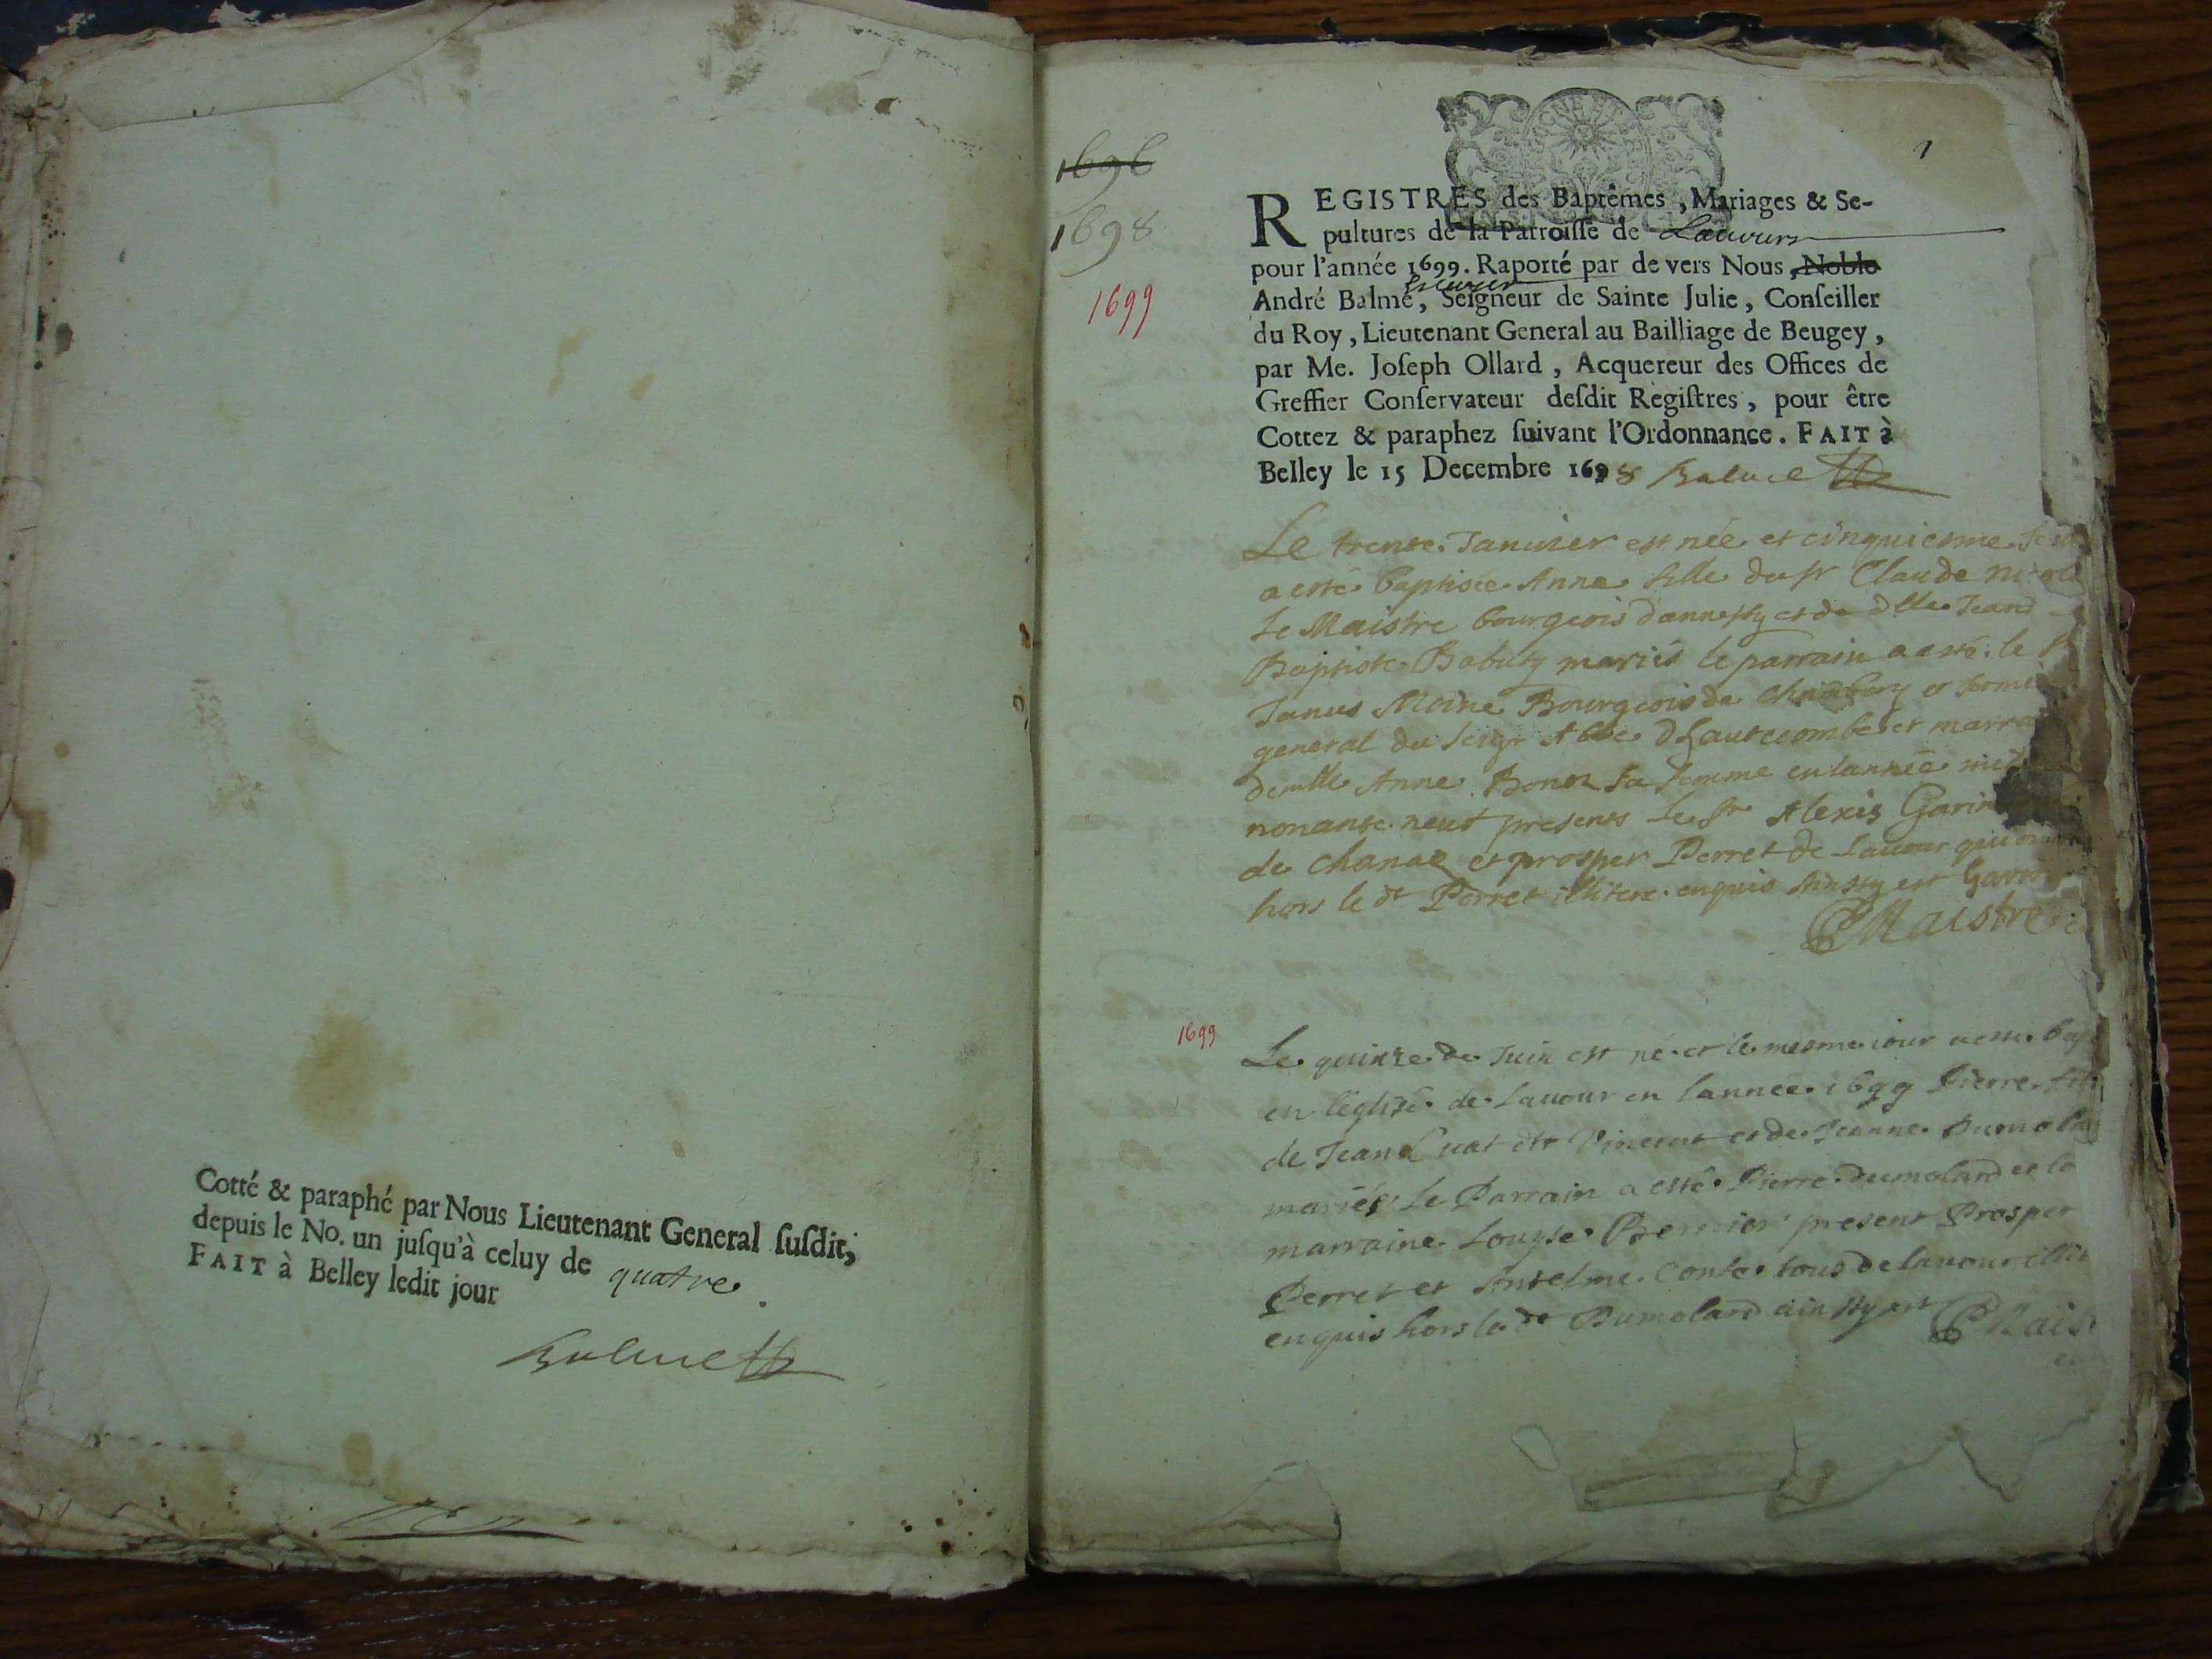 Cotté & paraphé par Nous Lieutenant General ſuſdit,
depuis le No. un juſqu'à celuy de quatre
FAIT à Belley ledit jour
Balme
1696
1698
1699
1
REGISTRES des Baptêmes, Mariages & Se-
pultures de la Parroiſſe de Lavours
pour l'année 1699. Raporté par de vers Nous, Noble
Escuyer
André Balme, Seigneur de Sainte Julie, Conſeiller
du Roy, Lieutenant General au Bailliage de Beugey,
par Me. Joſeph Ollard, Acquereur des Offices de
Greffier Conſervateur deſdit Regiſtres, pour être
Cottez & paraphez ſuivant l'Ordonnance. FAIT à
Belley le 15 Decembre 1698 Balme
Le trente Januier est née et cinquiesme
a esté baptisée Anne fille du sr Claude
le Maistre bourgeois dannessy et de dlle Jean
Baptiste Babuty mariés le parrain a esté le
Janus Moine Bourgeois de et
general du seigr Abbé dhautecombe et
demlle Anne sa femme en lannée
nonante neuf presents le sr Alexis Garin
de Chanaz et prosper Perret de Lauour qui
hors le dt Perret illitere enquis ainsy est
Maistre
1699
Le quinze de Juin est né et le mesme iour a esté
en léglise de Lauour en lannée 1699 Pierre
de Jean dit et de Jeanne
mariés Le Parrain a esté Pierre dumolard et la
marraine Louyse Bernier present Prosper
Perret et Antelme tous de lauour
enquis hors le dt Dumolard ainsy est